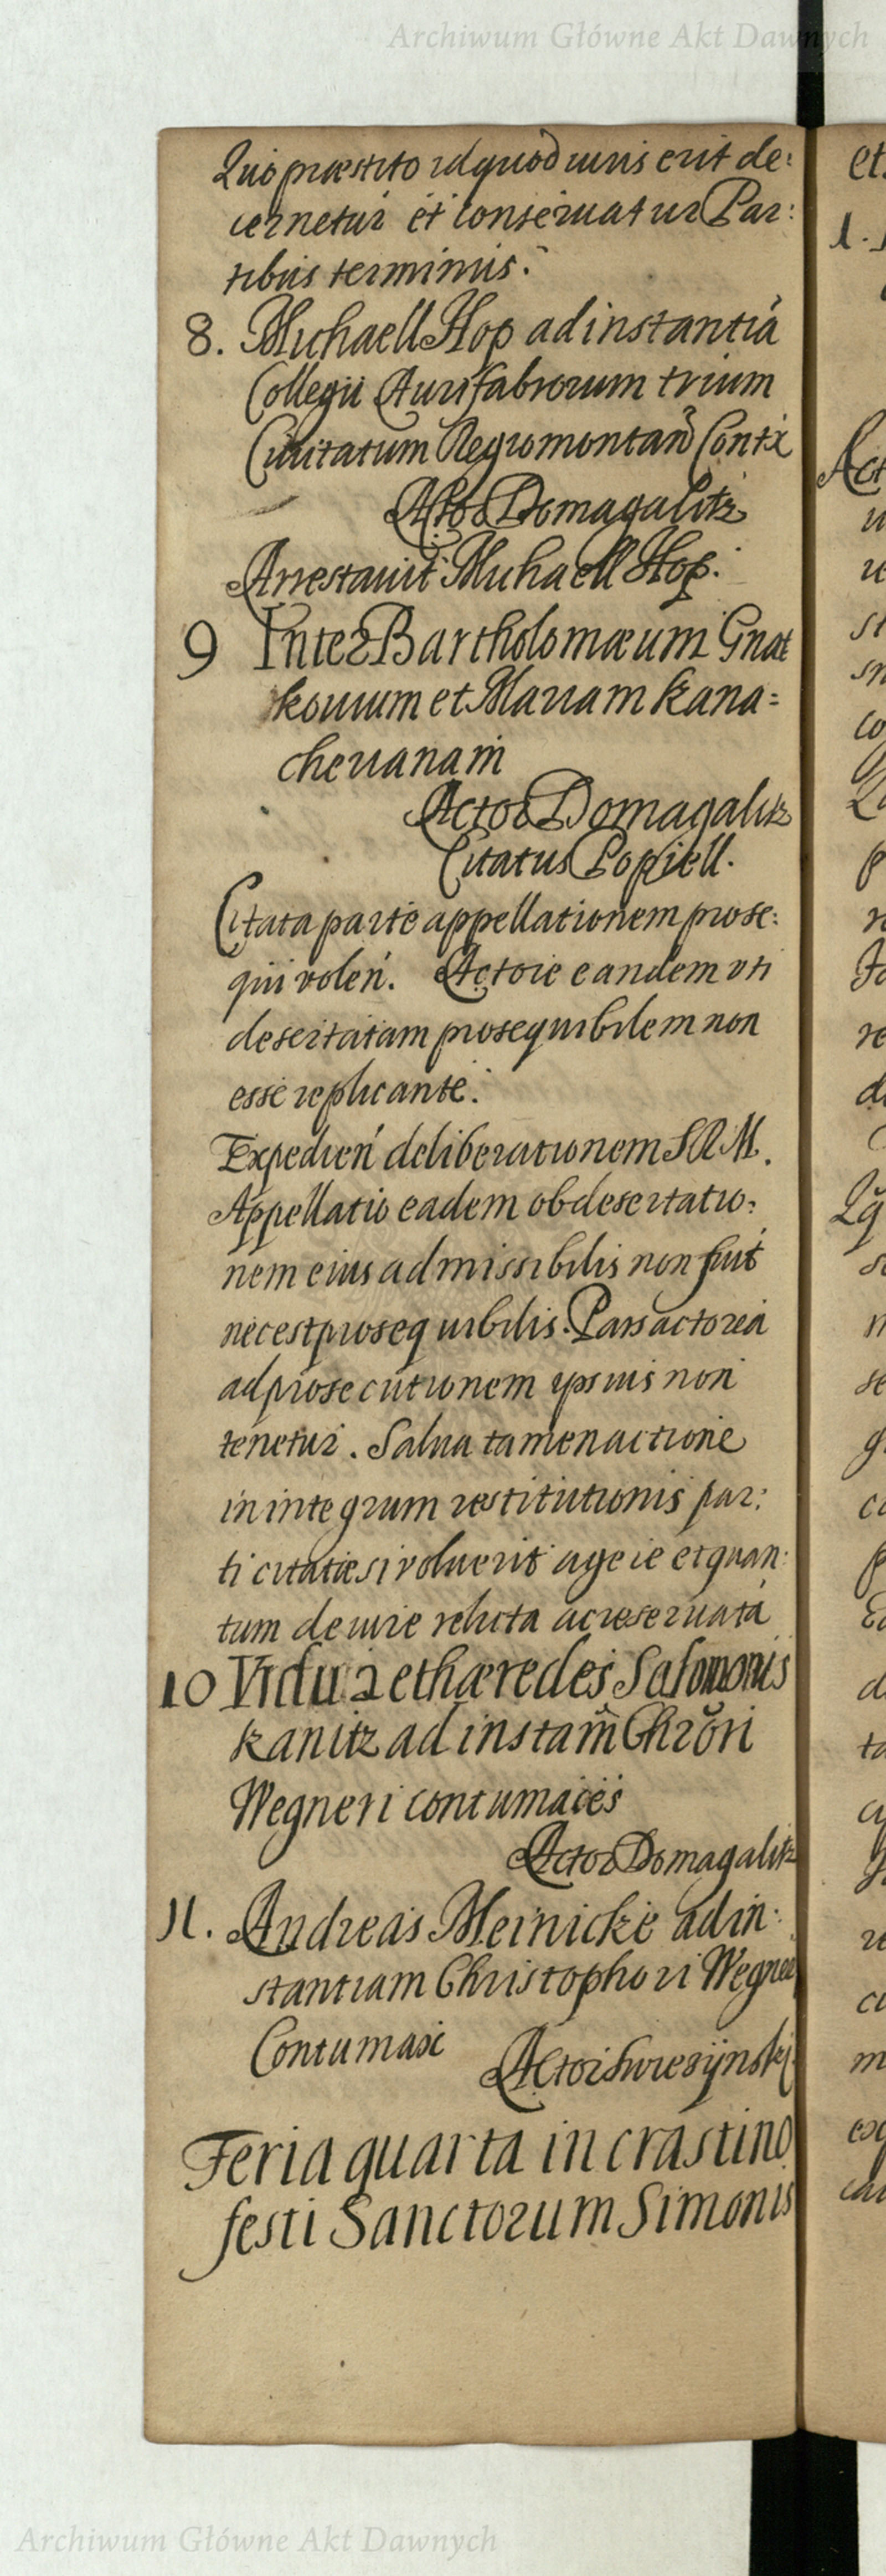 Archiwum Główne Akt Dawnych
Quo præstito id quod iuris erit de:
cernetur et conseruatur Par:
tibus terminus.
8. Michaell Hop ad instantiā
Collegii Aurifabrorum trium
Ciuitatum Regiomontan̄ Contx
Actor Domagalitz
Arrestauit Michaell Hop.
9 Inter Bartholomæum Gnat
kouium et Mariam kana=
cherianam
Actor Domagalitz
Citatus Popiell.
Citata parte appellationem prose:
qui volen̄. Actore eandem vti
desertatam prosequibilem non
esse replicante.
Expedien̄ deliberationem S R M.
Appellatio eadem ob desertatio:
nem eius admissibilis non fuit
nec est prosequibilis. Pars actorea
ad prosecutionem ipsius non
tenetur. Salua tamen actione
in integrum restitutionis par:
ti citatæ si voluerit agere et quan:
tum de iure relicta ac reseruata
10 Vidua et hæredes Salomonis
kanitz ad instam̄ Chrōri
Wegneri contumaces
Actor Domagalitz
11. Andreas Meinicke ad in:
stantiam Christophori Wegner
Contumax Actor
Feria quarta in crastino
festi Sanctorum Simonis
Archiwum Główne Akt Dawnych